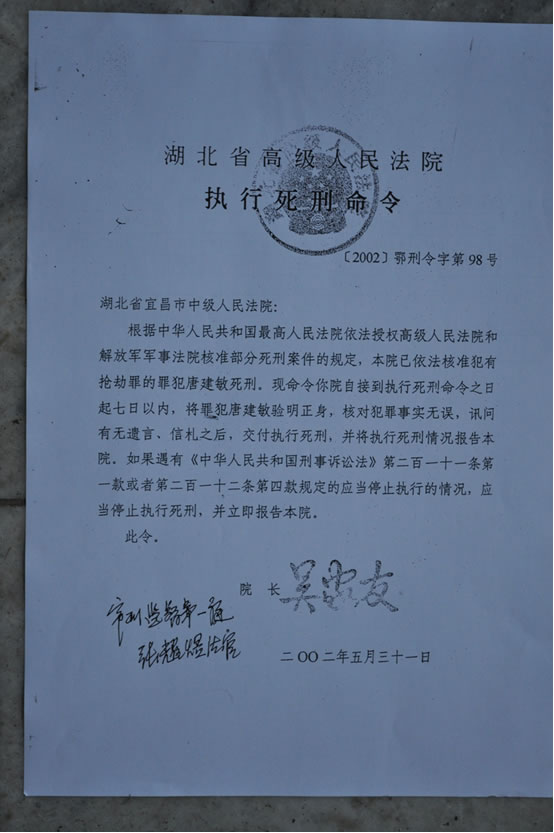 湖北省高级人民法院
执行死刑命令
〔2002〕鄂刑令字第98号
湖北省宜昌市中级人民法院：
根据中华人民共和国最高人民法院依法授权高级人民法院和
解放军军事法院核准部分死刑案件的规定，本院已依法核准犯有
抢劫罪的罪犯唐建敏死刑。现命令你院自接到执行死刑命令之日
起七日以内，将罪犯唐建敏验明正身，核对犯罪事实无误，讯问
有无遗言、信札之后，交付执行死刑，并将执行死刑情况报告本
院。如果遇有《中华人民共和国刑事诉讼法》第二百一十一条第
一款或者第二百一十二条第四款规定的应当停止执行的情况，应
当停止执行死刑，并立即报告本院。
此令。
院长 吴家友
二〇〇二年五月三十一日